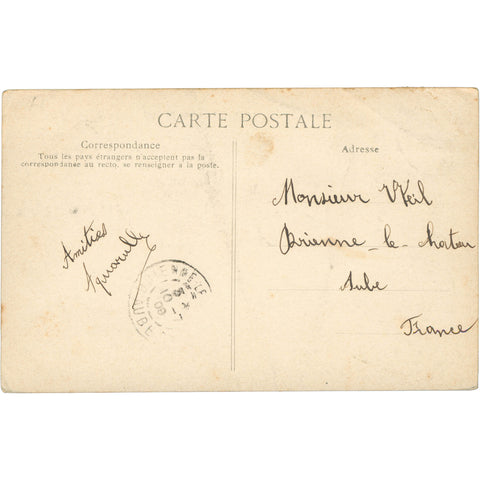 CARTE POSTALE
Correspondance
Tous les pays étrangers n'acceptent pas la
correspondance au recto, se renseigner à la poste.
Amitiés
Adresse
Monsieur Weil
Brienne-le-Chateau
Aube
France